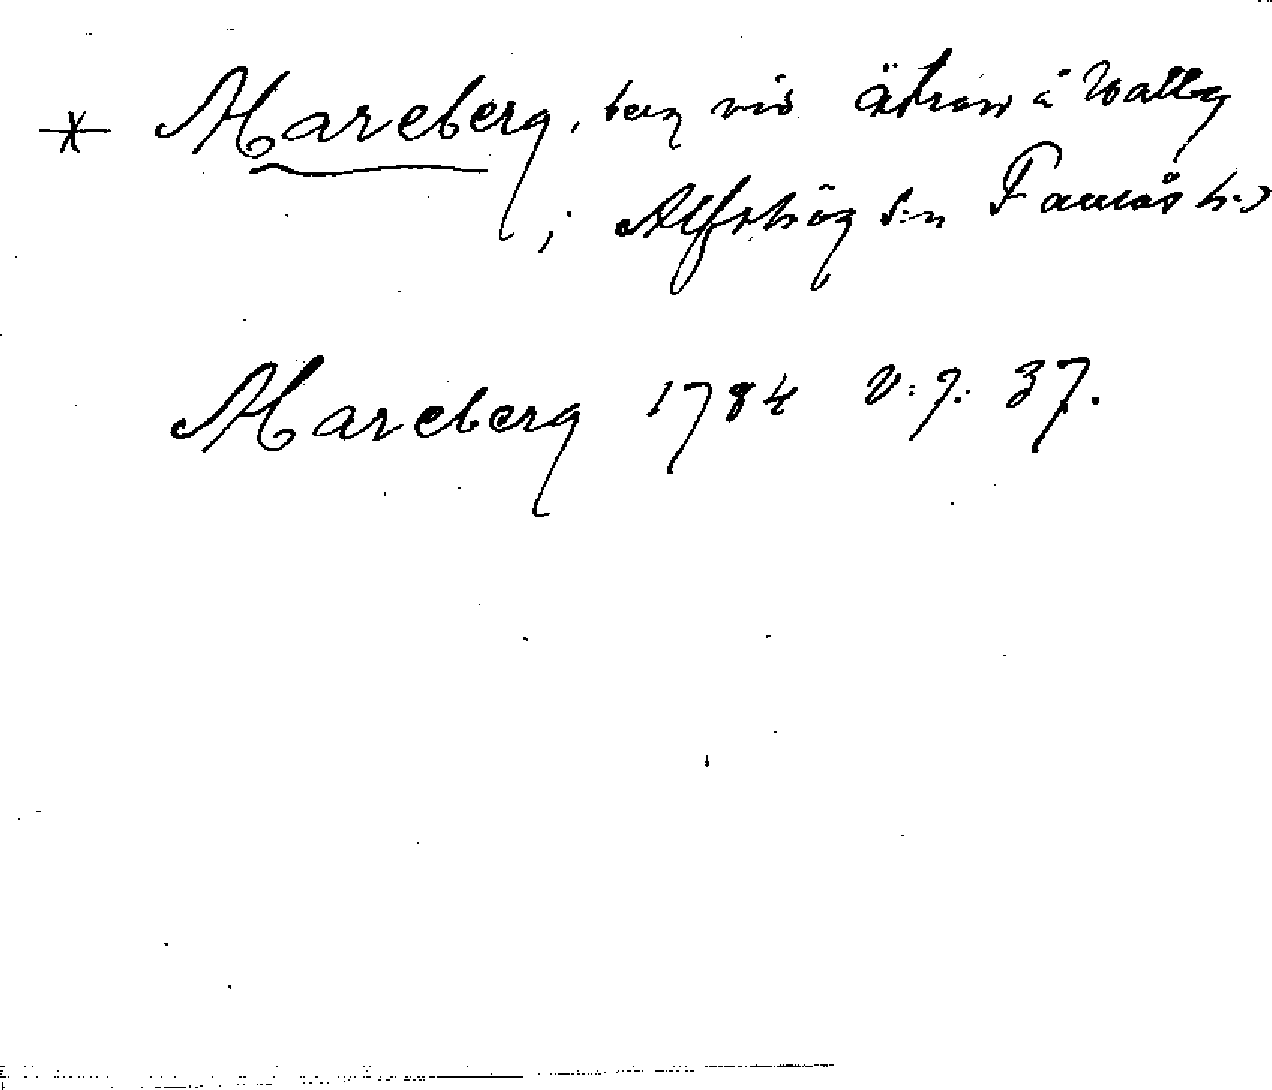 * Mareberg, berg vid Ätran i Walby
i Alfshög s:n Faurås h:d
Mareberg 1784 V. 7. 37.